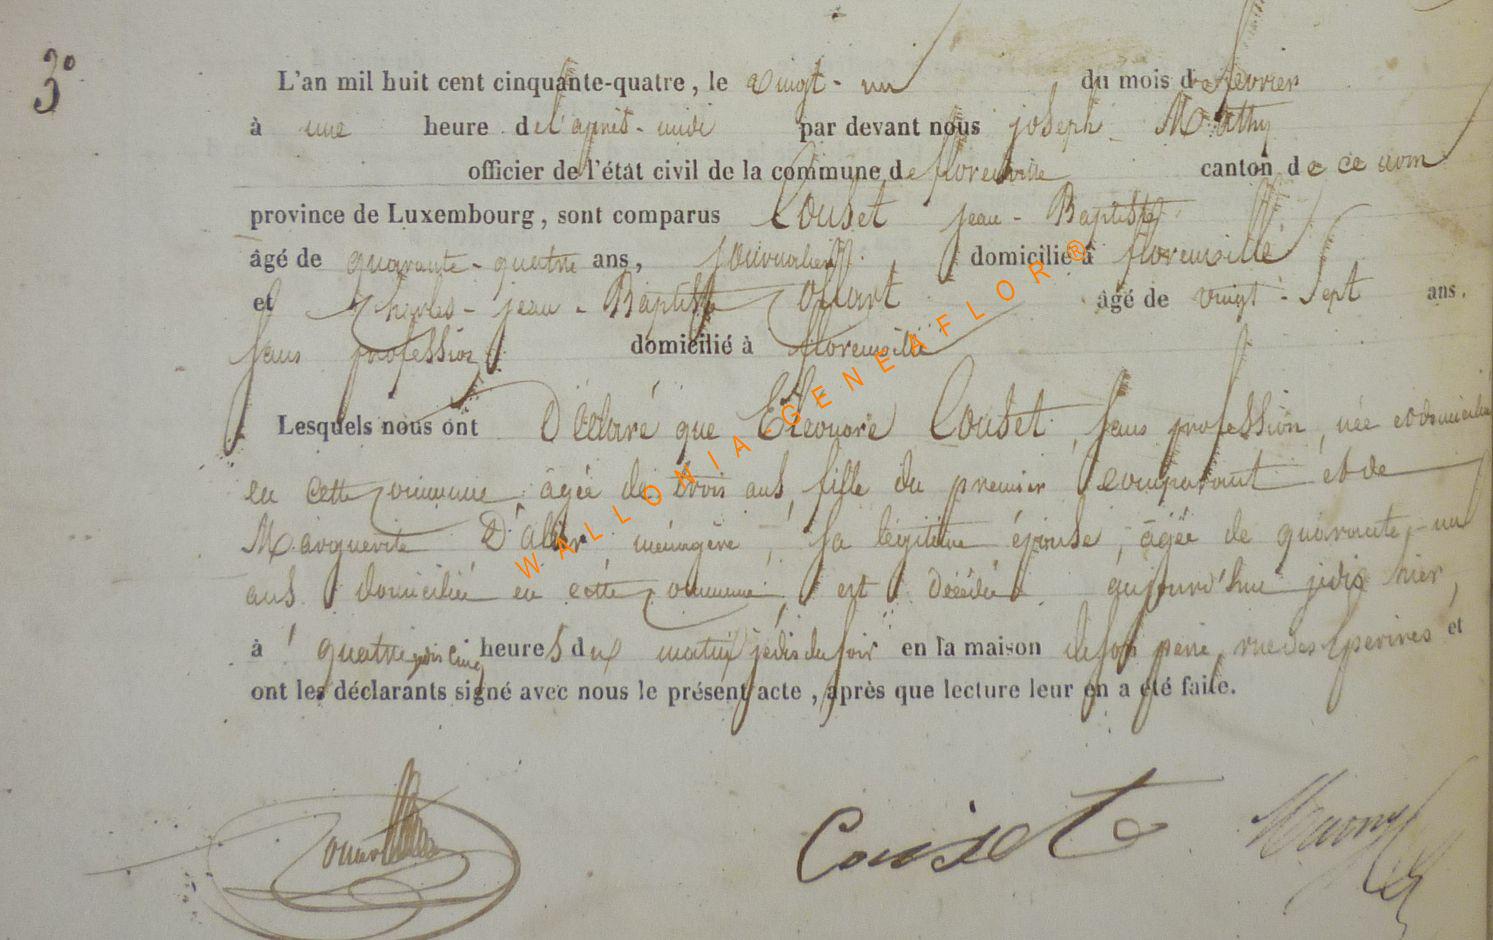 3°
L'an mil huit cent cinquante-quatre, le vingt-un du mois de février
à une heure de l'après-midi par devant nous joseph Mathy
officier de l'état civil de la commune de florenville canton de ce nom
province de Luxembourg, sont comparus Couset jean-Baptiste
âgé de quarante-quatre ans, journalier domicilié à florenville
et Charles-jean-Baptiste âgé de vingt-sept ans.
sans profession domicilié à florenville
Lesquels nous ont Déclaré que Eléonore Couset, sans profession, née et domiciliée
en cette commune âgée de trois ans, fille du premier comparant et de
Marguerite ménagère, sa légitime épouse, âgée de quarante-un
ans domiciliée en cette commune, est décédée aujourd'hui jédis hier,
à quatre jédis cinq heures du matin jédis du soir en la maison de son père, rue des et
ont les déclarants signé avec nous le présent acte, après que lecture leur en a été faite.
Couset
WALLONIA-GENEAFLOR®